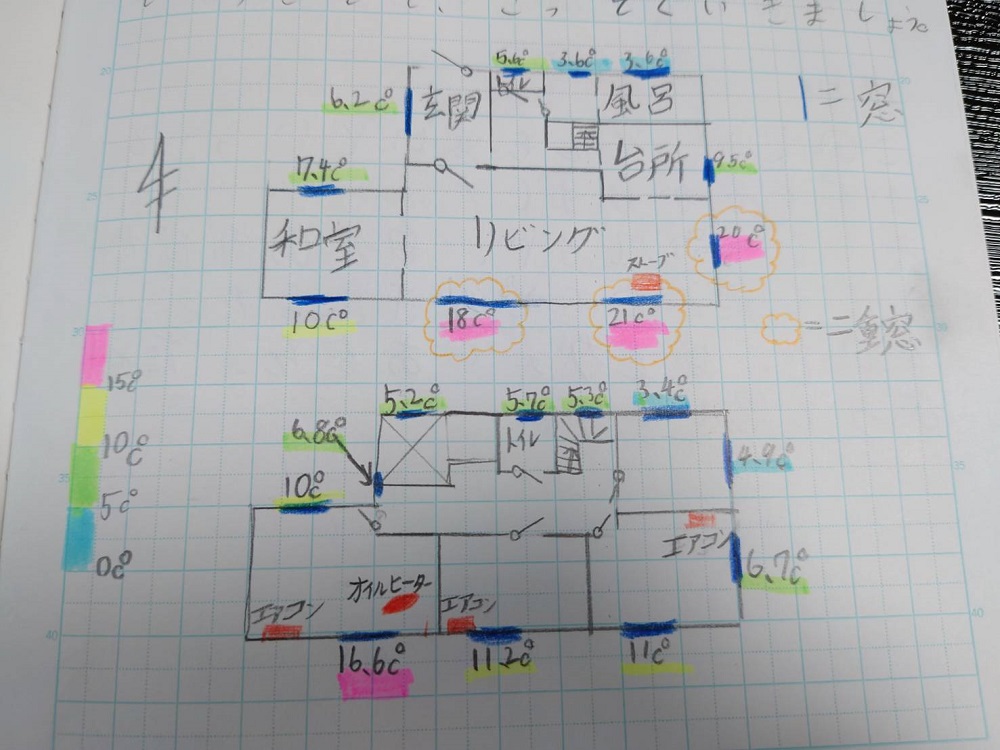 ていきましょう
5.6c° 3.6c° 3.6c°
6.2c° 玄関 トイレ 風呂 | = 窓
台所 9.5c°
7.4c°
和室 リビング 20c°
ストーブ
10c° 18c° 21c° = 二重窓
15c°
10c°
5c°
0c°
5.2c° 5.7c° 5.3c° 3.4c°
6.8c° トイレ 4.9c°
10c°
エアコン 6.7c°
エアコン オイルヒーター エアコン
16.6c° 11.2c° 11c°